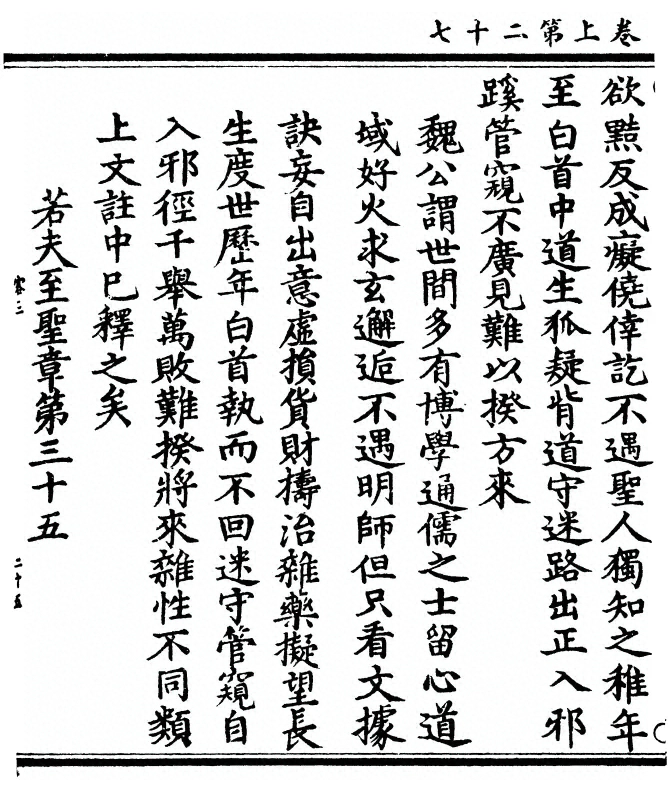 卷上第二十七
欲黠反成癡僥倖訖不遇聖人獨知之稚年
至白首中道生狐疑背道守迷路出正入邪
蹊管窺不廣見難以揆方來
魏公謂世間多有博學通儒之士留心道
域好火求玄邂逅不遇明師但只看文據
訣妄自出意虛損貨財擣治雜藥擬望長
生度世歷年白首執而不回迷守管窺自
入邪徑千舉萬敗難揆將來雜性不同類
上文註中巳釋之矣
若夫至聖章第三十五
二十五